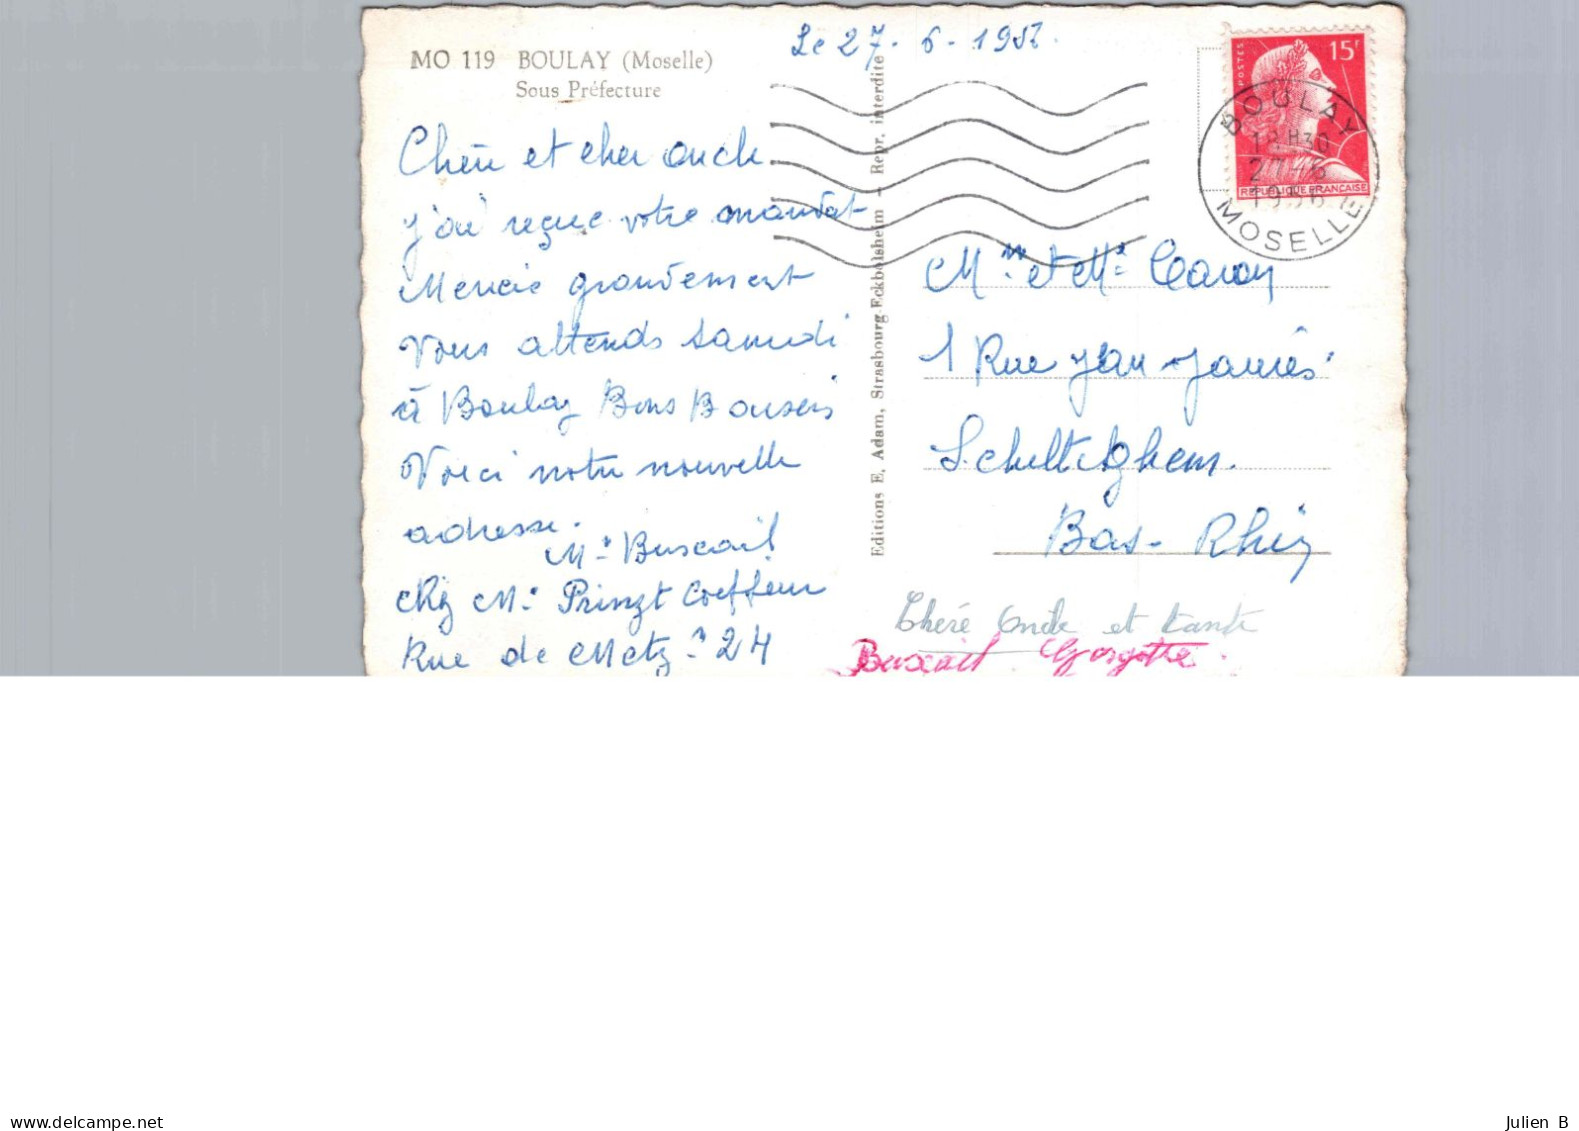 MO 119 BOULAY (Moselle)
Sous Préfecture
Le 27-6-195
Chère et cher oncle
j'ai reçue votre mandat
Mercie grandement
Vous attends samedi
à Boulay Bons Baisers
Voici notre nouvelle
adresse.
Mr Buscail
chez Mr Prinzt Coeffeur
Rue de Metz 24
Editions E. Adam, Strasbourg-Eckbolsheim — Repr. interdite
POSTES
15F
REPUBLIQUE FRANÇAISE
BOULAY
18H30
27-6
1956
MOSELLE
Mme et Mr
1 Rue Jean Jaurès
Schiltighem.
Bas-Rhin
Chéré Oncle et tante
Buscail
delcampe.net
Julien B